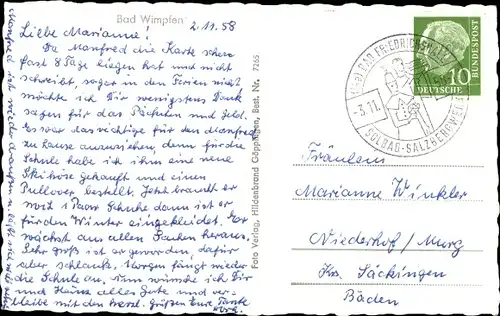 Bad Wimpfen
2.11.58
Liebe Marianne!
Da Manfred die Karte schon
fast 8 Tage liegen hat und nicht
schreibt, sogar in den Ferien nicht
möchte ich Dir wenigstens Dank
sagen für das Päckchen und Geld.
Es war das richtige für den Manfred
zu hause anzuziehen, denn für die
Schule habe ich ihm eine neue
Skihose gekauft und einen
Pullover bestellt. Jetzt braucht er
noch 1 Paar Schuhe dann ist er
für den Winter eingekleidet. Er
wächst aus allen Sachen heraus.
Sehr groß ist er geworden, dafür
aber schlank. Morgen fängt wieder
die Schule an, nun wünsche ich Dir
und Heinz alles Gute und ver-
bleibe mit den herzl. Grüßen Eure Tante
Foto Verlag, Hildenbrand Göppingen, Best. Nr. 7265
BAD FRIEDRICHSHALL
-3.11.
SOLBAD-SALZBERGWERK
10
DEUTSCHE
BUNDESPOST
Fräulein
Marianne Winkler
Niederhof/Murg
Krs. Säckingen
Baden